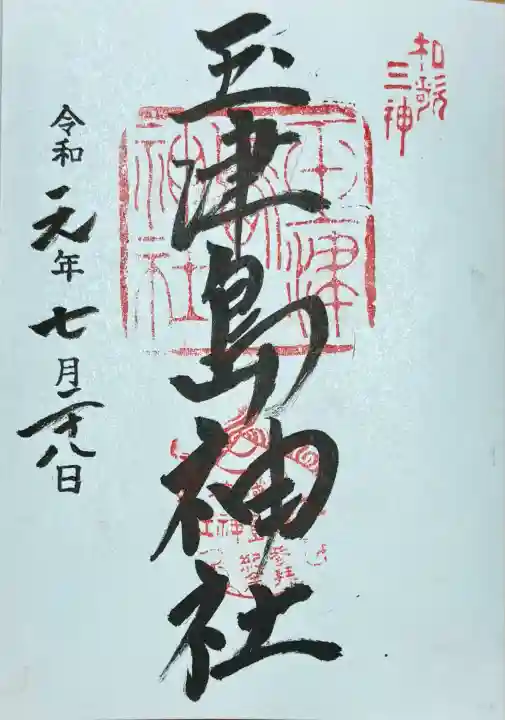 和歌
三神
玉津島神社
玉津
島
神社
令和元年七月二十八日